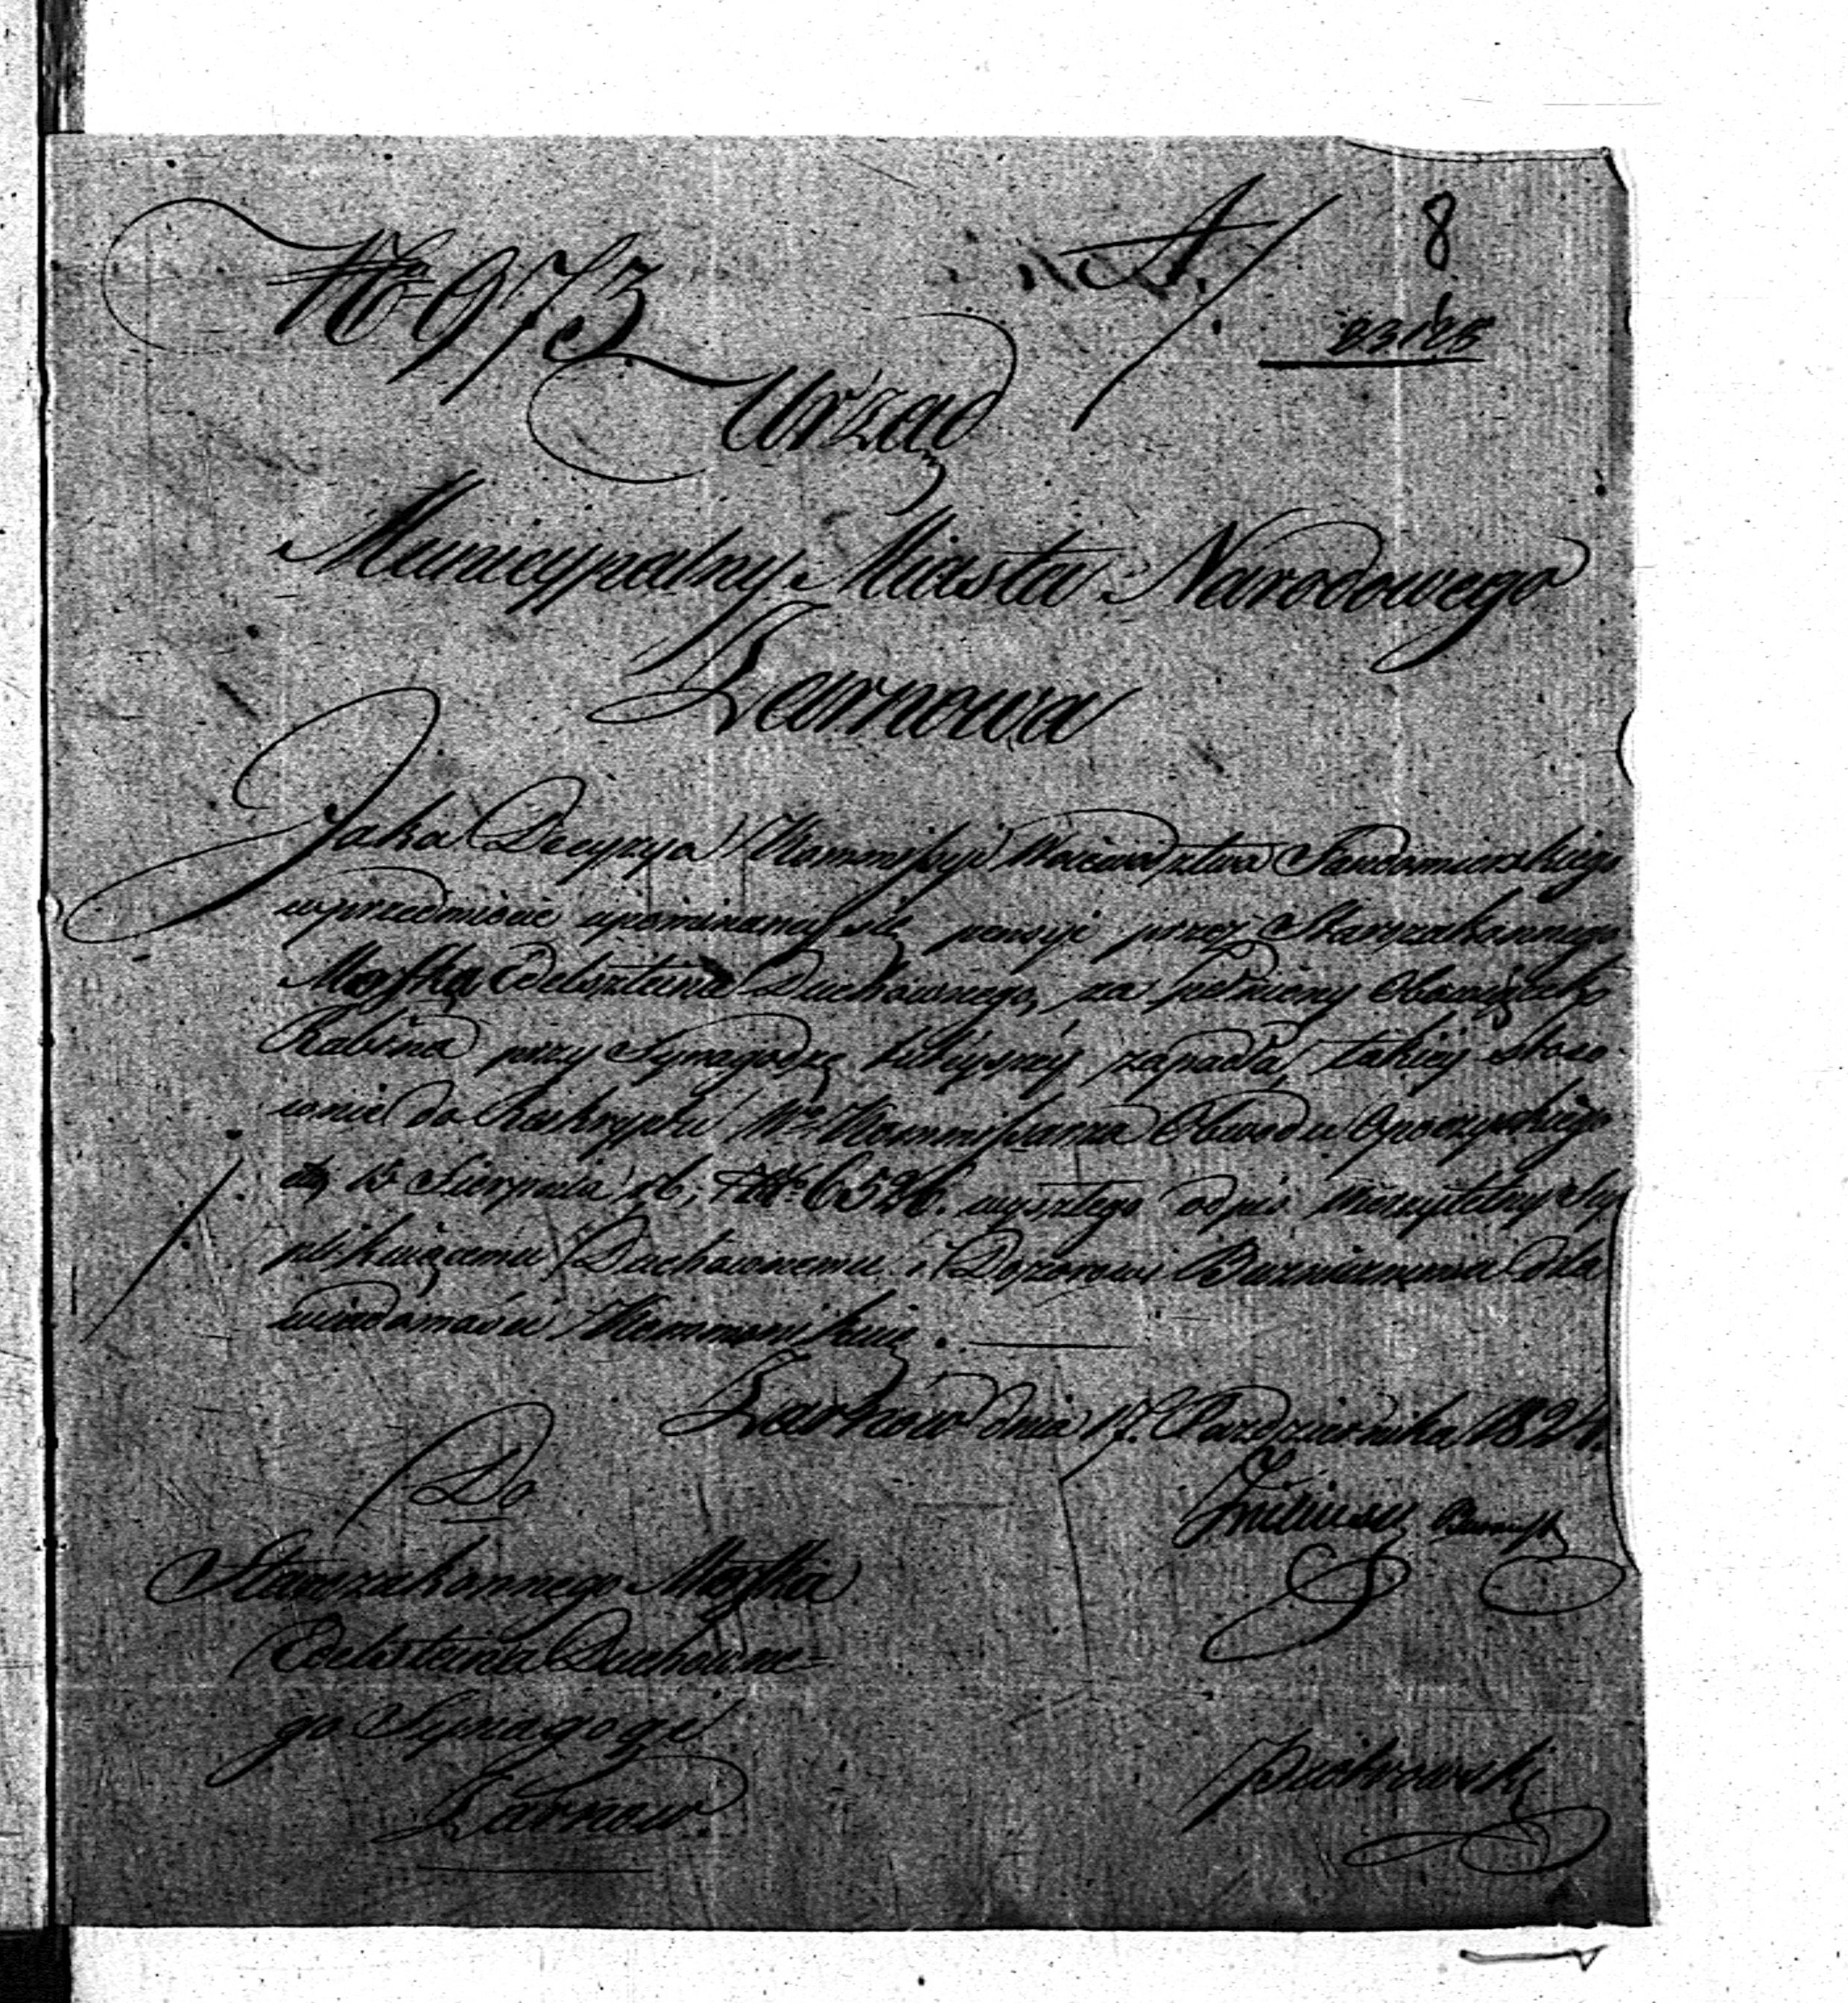 No 973
A.
8
23125
Urząd
Municypalny Miasta Narodowego
Żarnowa
Jaka Decyzya Kommissyi Woiewództwa Sandomierskiego
w przedmiocie upominania się pensyi przez Starozakonnego
Moszka Edelszteina Duchownego, za pełniony Obowiązek
Rabina przy Synagodze tuteyszey zapadła, takiey stoso-
wnie do Reskryptu Wo Kommissarza Obwodu Opoczyńskiego
15 Sierpnia rb, No 6526. wyszłego odpis
Duchownemu i Dozorowi Bużniczemu dla
wiadomości Kommunikuie.
Żarnów dnia 17. Października 1824
Do
Starozakonnego Moszka
Edelsteina Duchowne-
go Synagogi
Żarnow.
Piotrowski